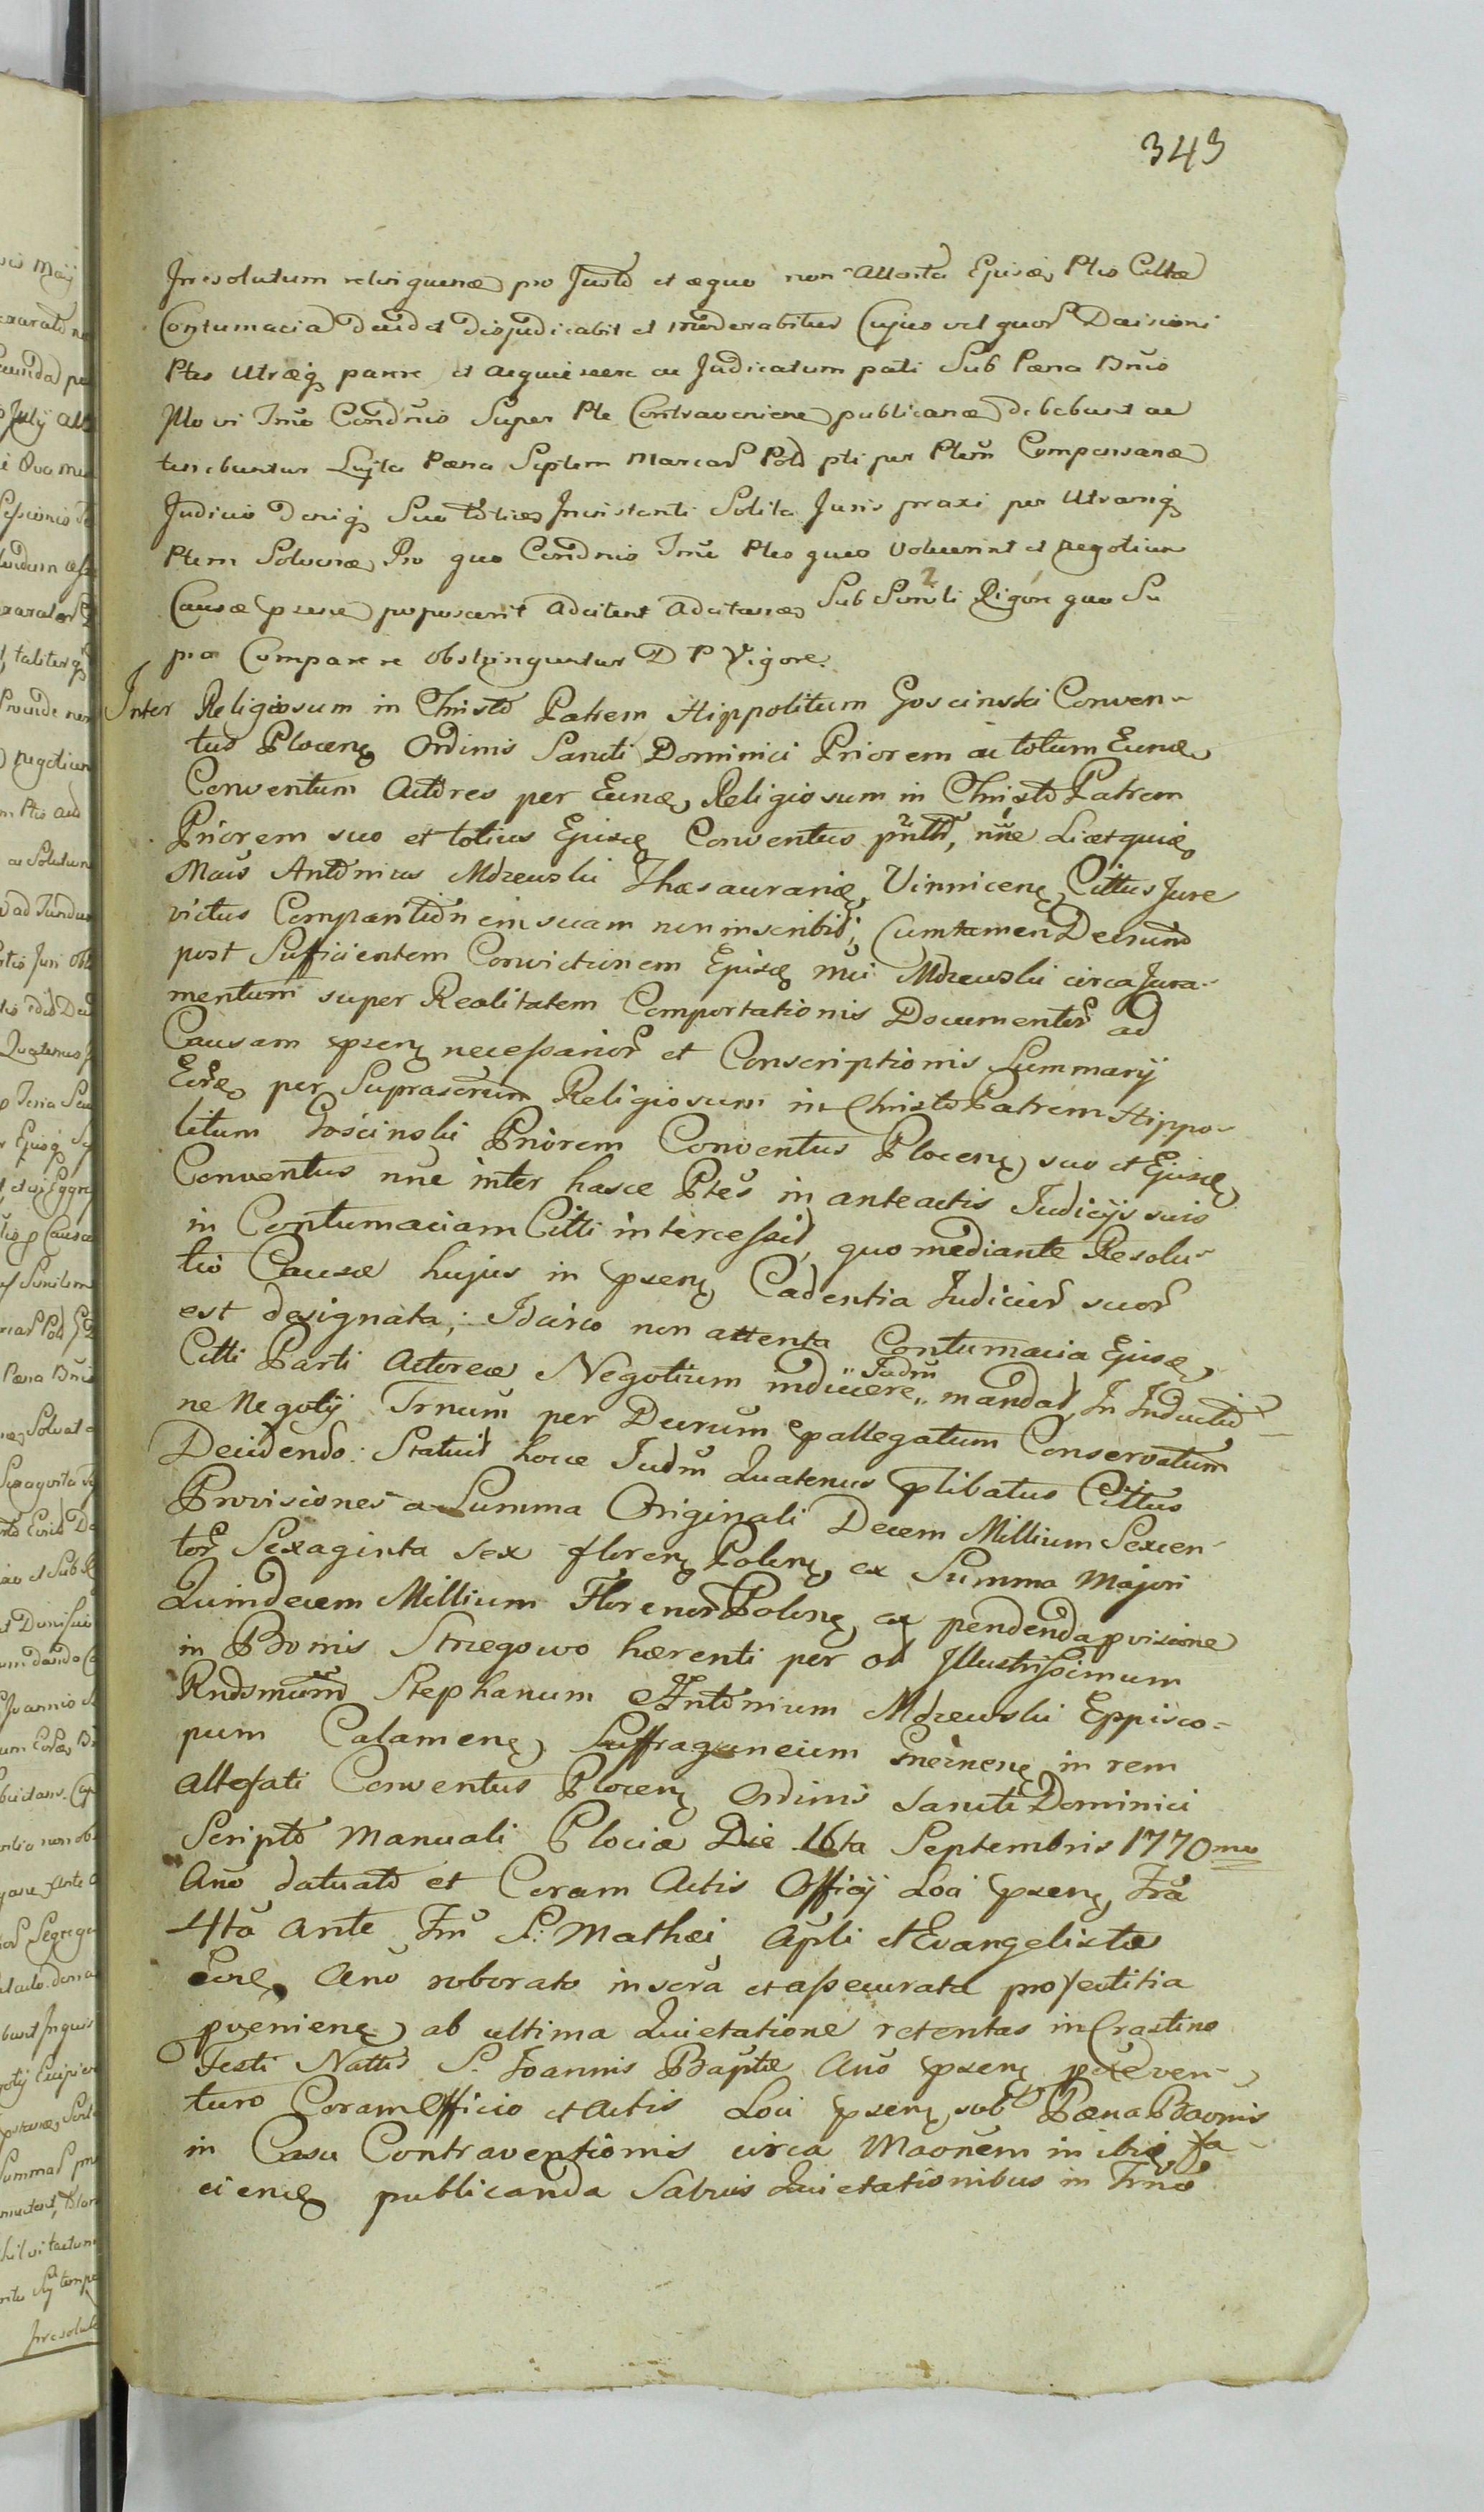 343
Irresolutum relinquen pro Justo et æquo non attenta Ejusd Ptis Cittæ
Contumacia decidet disjudicabit et moderabitur Cujus vel quor Decisioni
Ptes Utræq parere et acquiescere ac Judicatum pati Sub Pœna Bnis
Plo vi Trno Condnio Super Pte Contravenien publican debebunt ac
tenebuntur Luita Pœna Septem Marcar Pol pti per Ptem Comparsan
Judicio deniq Suo toties Insistenti Solita Juris praxi per Utramq
Ptem Solven Pro quo Condnio Trno Ptes quas voluerint et negotium
Causæ præsen poposcerit adcitent adcitatæ Sub Simili Rigore quo Su
pra Comparere obstringuntur D P Vigore.
Inter Religiosum in Christo Patrem Hippolitum Goscinski Conven-
tus Plocen Ordinis Sancti Dominici Priorem ac totum Eund
Conventum Actores per Eund Religiosum in Christo Patrem
Priorem suo et totius Ejusd Conventus pntto, nne Licet quid
Mcus Antonius Mdzewski Thesaurarid Vinnicen Cittus Jure
victus Comparitionem suam non inscribit; Cumtamen Decrum
post Sufficientem Convictionem Ejusd Mci Mdzewski circa Jura-
mentum super Realitatem Comportationis Documentor ad
Causam præsen necessarior et Conscriptionis Summarij
Eord per Suprascrum Religiosum in Christo Patrem Hippo-
litum Goscinski Priorem Conventus Plocen suo et Ejusd
Conventus nne inter hasce Ptes in anteactis Judicijs suis
in Contumaciam Citti intercessit, quo mediante Resolu-
tio Causæ hujus in præsen Cadentia Judicior suor
est designata; Idcirco non attenta Contumacia Ejusd
Citti Parti Actoreæ Negotium inducere " Judm mandat, In Inductio
ne Negotij Trnum per Decrum præallegatum Conservatum
Decidendo: Statuit hocce Judm Quatenus prælibatus Cittus
Provisiones a Summa Originali Decem Millium Sexcen-
tor Sexaginta sex floren Polon, ex Summa Majori
Quindecem Millium Florenor Polon, ac pendenda provisione
in Bonis Strzegowo hærenti per ol Illustrissimum
Rndsmum Stephanum Antonium Mdzewski Eppisco-
pum Calamen Suffraganeium Gneznen in rem
Allefati Conventus Plocen Ordinis Sancti Dominici
Scripto Manuali Plociæ Die 16ta Septembris 1770mo
Ano datuato et Coram Actis Officij Loci præsen Fra
4ta ante Fm S: Mathei Apli et Evangelistæ
Eod Ano roborato inscra et assecurata profectitia
provenien ab ultima Quietatione retentas in Crastino
Festi Nattis S. Joannis Baptæ Ano præsen proxeven-
turo Coram Officio et Actis Loci præsen sub Pœna Baonis
in Casu Contraventionis circa Maonem in ibid fa-
ciend publicanda Salvis Quietationibus in Trno